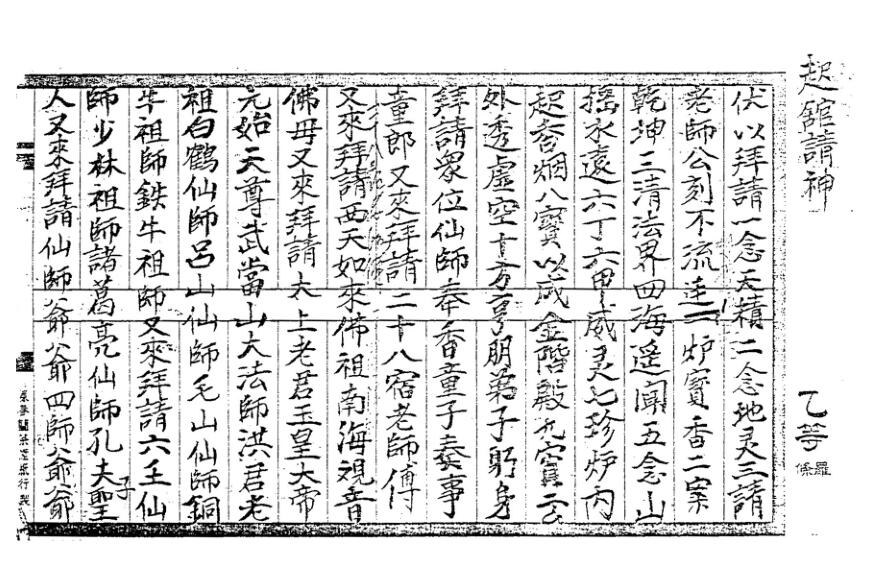 起館請神
乙等
羅
條
伏以拜請一念天積二念地灵三請
老師公刻不流連一炉寳香二案
乾坤三清法界四海遥聞五念山
摇水遠六丁六甲威灵七珍炉内
起香烟八寳以成金階殿九寳云
外透虚空十方亨朋弟子躬身
拜請衆位仙師奉香童子奏事
童郎又來拜請二十八宿老師傅
又來拜請西天如來佛祖南海視音
佛母又來拜請太上老君玉皇大帝
元始天尊武當山大法師洪君老
祖白鶴仙師吕山仙師毛山仙師銅
牛祖師鉄牛祖師又來拜請六壬仙
師少林祖師諸葛亮仙師孔夫子聖
人又來拜請仙師爺爺四師爺爺